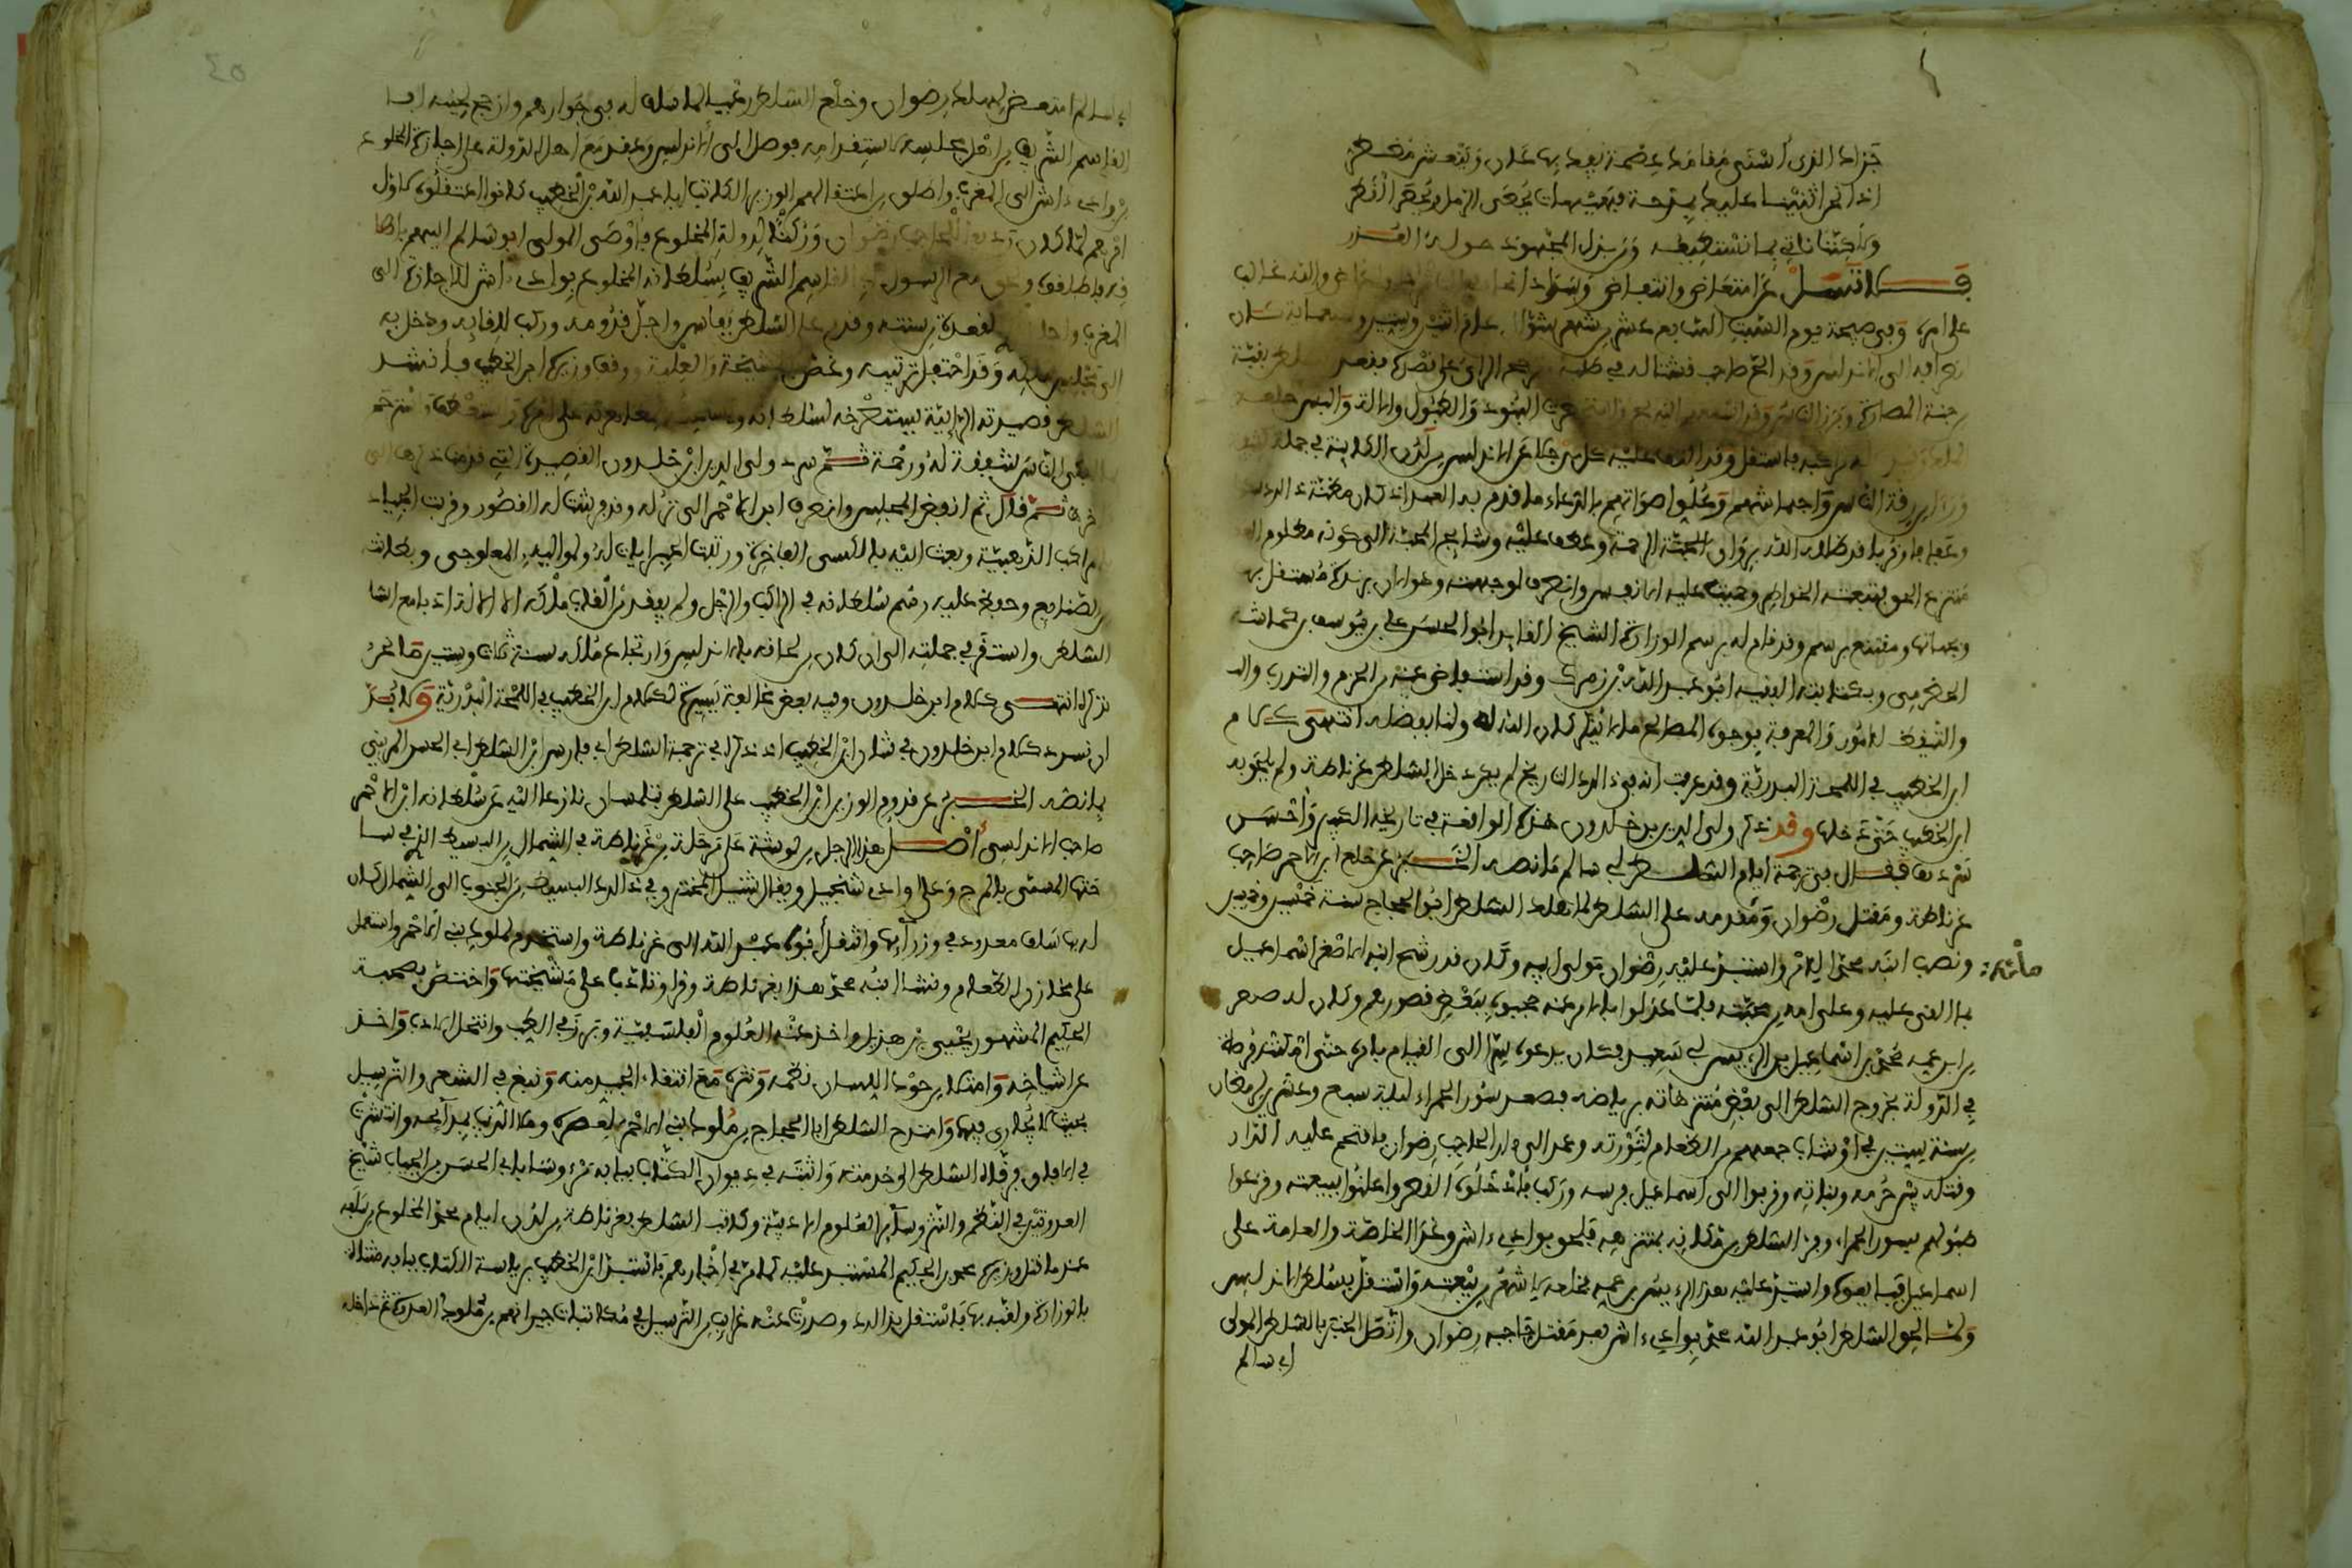 جزاك الذي أسنى مقامك عصمة يفك بها عان وينعش مضطر
إذا نحن أثنينا عليك بمدحة فهيهات يحصى الرمل أو يحصر القطر
ولكننا ناتي بما نستطيعه ومن بذل المجهود حق له العذر
على امره وفي صبيحة يوم السبت السابع عشر من شهر شوال عام اثنين وستين وسبعمائة كان
انصرافه الى الاندلس وقد الح صاحب قشتالة في طلبه
رحبة المصارة وبرز الناس وقد البنود والطبول والالة والبس خلعة
مراكبه فاستقل وقد التف عليه كل من جلا عن الاندلس من لدن الكاينة في جملة
رقة الناس واجهاشهم وعلو اصواتهم بالدعاء ما قدم به العهد اذ كان مظنة ذلك
وعفافا وقربا قد ظلله الله برواق الرحمة وعطف عليه وشايج المحبة الى كونه مظلوم
منتزع الحق فتبعته الخواطر وحميت عليه الانفس وانصرف لوجهته وهو الان برندة مستقل بها
وبجهاتها ومقتنع برسم وقد قام له برسم الوزارة الشيخ القايد ابو الحسن علي بن يوسف بن كماشة
الحضرمي وبكتابته الفقيه ابو عبد الله بن زمرك وقد استفاض عنه من الحزم والتدرب
والتيقظ للامور والمعرفة بوجوه المصالح ما لا ينكر كان الله له ولنا بفضله انتهى كلام
ابن الخطيب في اللمحة البدرية وقد عرفت انه في ذلك التاريخ لم يعد دخل السلطان غرناطة ولم يلحق به
ابن الخطيب حتى دخلها وقد ذكر ولي الدين بن خلدون هذه الواقعة في تاريخه الكبير واحسن
سردها فقال في ترجمة ايام السلطان ابي سالم ما نصه الخبر عن خلع ابن الاحمر صاحب
غرناطة ومقتل رضوان ومقدمه على السلطان لما هلك السلطان ابو الحجاج سنة خمس وخمسين
ونصب ابنه محمد للامر واستبد عليه رضوان مولى ابيه وكان قد رشح ابنه الاصغر اسماعيل
بما القى عليه وعلى امه من محبته فلما عدلوا بالامر عنه حجبوه ببعض قصورهم وكان له صهر
من ابن عمه محمد بن اسماعيل بن الرييس ابي سعيد فكان يدعوه سرا الى القيام بامره حتى امكنته فرصة
في الدولة بخروج السلطان الى بعض منتزهاته برياضه فصعد سور الحمراء ليلة سبع وعشرين لرمضان
من سنة ستين في اوشاب جمعهم من الطغام لثورته وعمد الى دار الحاجب رضوان فاقتحم عليه الدار
وقتله بين حرمه وبناته وقربوا الى اسماعيل فرسه وركب فادخلوه القصر واعلنوا ببيعته وقرعوا
طبولهم بسور الحمراء وفر السلطان من مكانه بمنتزهه فلحق بوادي ءاش وغدا الخاصة والعامة على
اسماعيل فبايعوه واستبد عليه هذا الرييس بن عمه فخلعه لاشهر من بيعته واستقل بسلطان الاندلس
ولما لحق السلطان ابو عبد الله محمد بوادي ءاش بعد مقتل حاجبه رضوان واتصل الخبر بالسلطان المولى
ابي سالم
ابي سالم امتعض لهلك رضوان وخلع السلطان رعيا لما سلف له في جوارهم وازعج لحينه ابا
القاسم الشريف من اهل مجلسه لاستقدامه فوصل الى الاندلس وعقد مع اهل الدولة على اجازة المخلوع
من وادي ءاش الى المغرب واطلق من اعتقالهم الوزير الكاتب ابا عبد الله بن الخطيب كانوا اعتقلوه لاول
امرهم لما كان رضوان وركنا لدولة المخلوع فاوصى المولى ابو سالم اليهم باطلا
قه فاطلقوه ولحق مع الرسول القاسم الشريف بسلطانه المخلوع بوادي ءاش للاجازة الى
المغرب لقعدة من سنته وقدم على السلطان بفاس واجل قدومه وركب للقايه ودخل به
الى مجلس ملكه وقد احتفل ترتيبه وغص والعلية ووقف وزيره ابن الخطيب فانشد
السلطان قصيدته الرائية يستصرخه لسلطانه
ابكى الناس شفقة له ورحمة ثم سرد ولي الدين ابن خلدون القصيدة التي قدمنا ذكرها الى
ءاخرها ثم قال ثم انفض المجلس وانصرف ابن الاحمر الى نزله وقد فرشت له القصور وقربت الجياد
بالمراكب الذهبية وبعث اليه بالكسى الفاخرة ورتبت الجرايات له ولمواليه المعلوجى وبطانته
من الصنايع وحفظ عليه رسم سلطانه في الراكب والراجل ولم يفقد من القاب ملكه الا الالة ادبا مع
السلطان واستقر في جملته الى ان كان من لحاقه بالاندلس وارتجاع ملكه سنة ثلاث وستين ما نحن
نذكره انتهى كلام ابن خلدون وفيه بعض مخالفة يسيرة لكلام ابن الخطيب في اللمحة البدرية ولا بد
ان نسرد كلام ابن خلدون في شان ابن الخطيب اذ ذكره في ترجمة السلطان ابي فارس ابن السلطان ابي الحسن المريني
بما نصه الخبر عن قدوم الوزير ابن الخطيب على السلطان بتلمسان نازعا اليه عن سلطانه ابن الاحمر
صاحب الاندلس اصل هذا الرجل من لوشة على مرحلة من غرناطة في الشمال من البسيط الذي في سا
حتها المسمى بالمرج وعلى وادي شنجيل ويقال شنيل المخترق في ذلك البسيط من الجنوب الى الشمال كان
له بها سلف معدود في وزرايها وانتقل ابوه عبد الله الى غرناطة واستخدم لملوك بني الاحمر واستعمل
على مخازن الطعام ونشا ابنه محمد هذا بغرناطة وقرا وتادب على مشيختها واختص بصحبة
الحكيم المشهور يحيى بن هذيل واخذ عنه العلوم الفلسفية وبرز في الطب وانتحل الادب واخذ
عن اشياخه وامتلا من حوك اللسان نظمه ونثره مع انتقاء الجيد منه ونبغ في الشعر والترسيل
بحيث لا يجارى فيها وامتدح السلطان ابا الحجاج من ملوك بني الاحمر لعصره وملا الدنيا بمدايحه وانتشرت
في الافاق فرقاه السلطان الى خدمته واثبته في ديوان الكتاب ببابه مرءوسا بابي الحسن بن الجياب شيخ
العدوتين في النظم والنثر وساير العلوم الادبية وكاتب السلطان بغرناطة من لدن ايام محمد المخلوع من سلفه
عندما قتل وزيره محمد بن الحكيم المستبد عليه كما مر في اخبارهم فاستبد ابن الخطيب برياسة الكتاب ببابه مثناة
بالوزارة ولقبه بها فاستقل بذلك وصدرت عنه غرايب من الترسيل في مكاتبات جيرانهم من ملوك العدوة ثم داخله